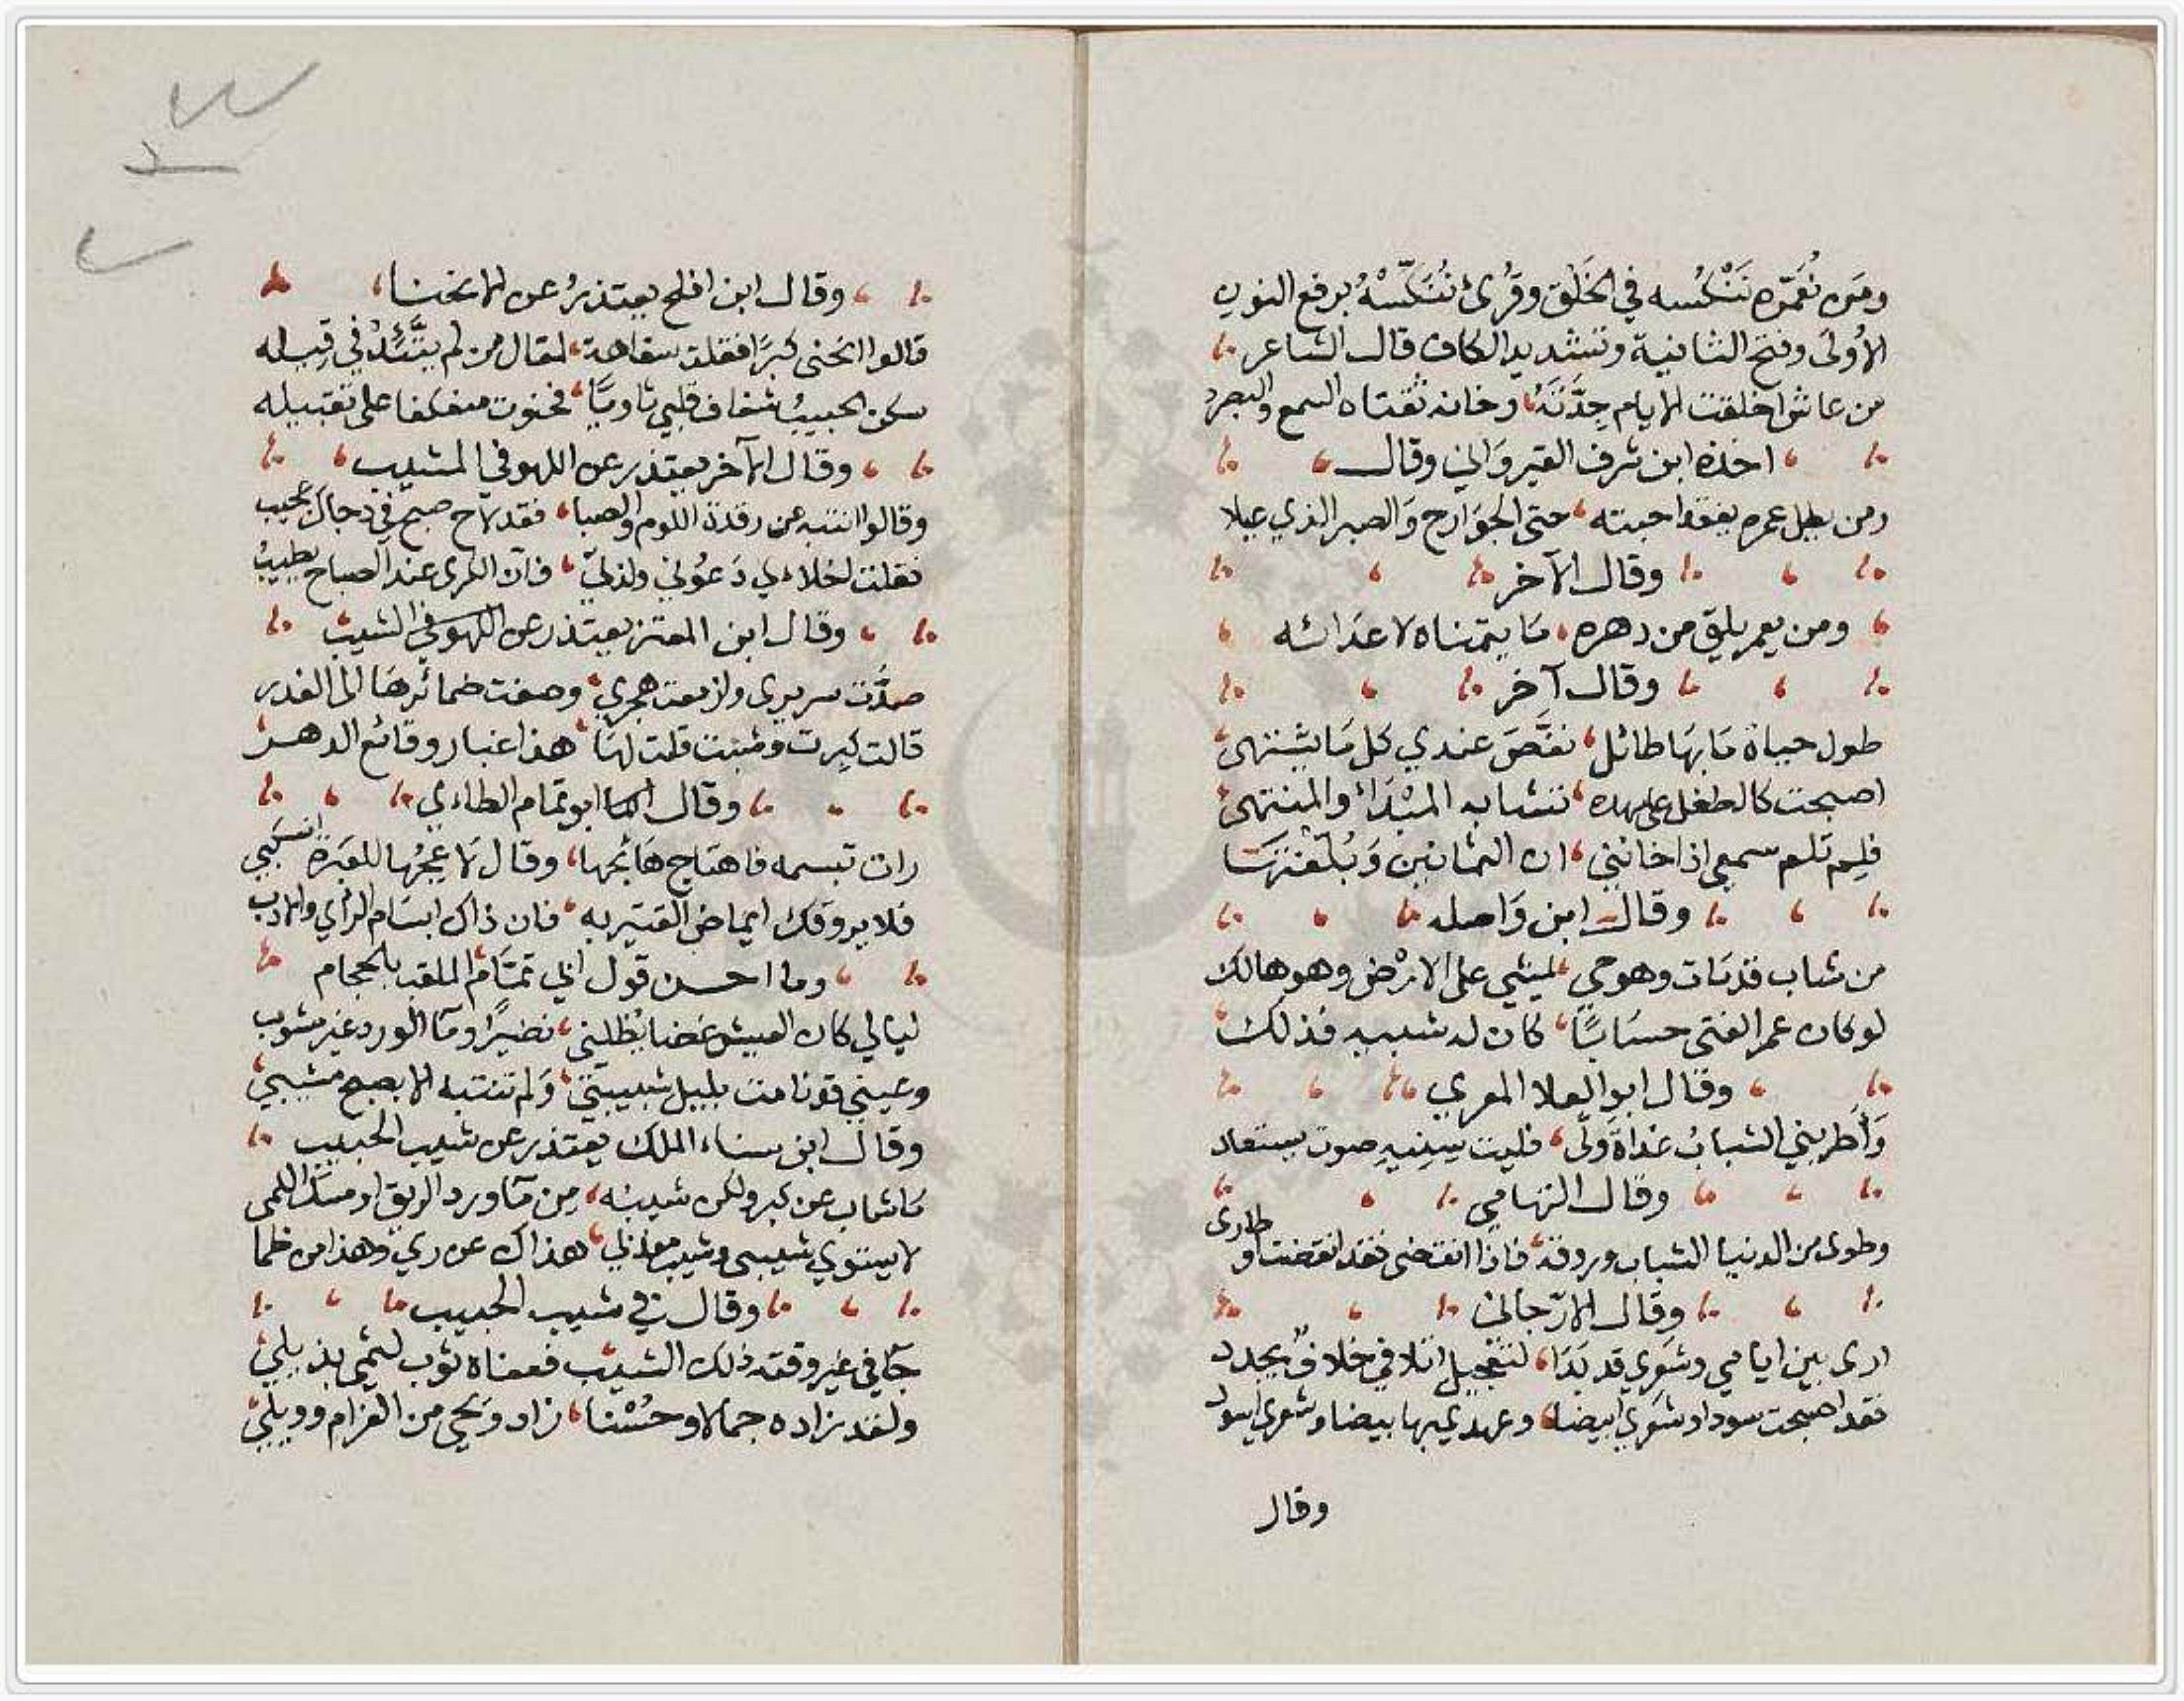 ومَن نُعَمّره نَنْكُسه في الخَلْق وقُرئ نُنَكّسْهُ برفع النون
الأولى وفتح الثانية وتشديد الكاف قال الشاعر
من عاش اخلقت الايام جِدَّتَهُ وخانه ثقتاه السمع والبصر
اخذه ابن شرف القيرواني وقال
ومن يطل عمره يفقد احبته حتى الجوارح والصبر الذي عيلا
وقال الآخر
ومن يعمر يلق من دهره ما يتمناه لاعدائه
وقال آخر
طول حياة مَا بهَا طائل نغّصَ عندي كل مَا يشتهى
اصبحت كالطفل على مهده تشابه المبْدَاء والمنتهى
فلِم تلم سمعي اذا خانني ان الثمانين وَبُلّغتهَا
وقال ابن وَاصله
من شاب قد مات وهو حي يمشي على الارْض وهو هالك
لو كان عمر الفتى حسَابًا كان له شيبه فذلك
وقال ابو العلا المعري
وَأطربني الشبابُ غداةَ ولّى فليت سِنِيهِ صوت يستعاد
وقال التهامي
وطرى من الدنيا الشباب وروقه فاذا انقضى فقد انقضت او
طارى
وقال الارّجاني
ارى بين ايامي وشَعري قد بَدَا لتعجيل اتلافي خلافٌ يجدد
فقد اصبحت سودا وشَعري ابيضا وعهدي بها بيضا وشعري اسود
وقال
وقال ابن افلح يعتذرُ عن الانحنا
قالوا انحَنى كبرًا فقلت سفاهة لمقال من لم يتَّئدْ في قِيله
سكن الحبيبُ شغاف قلبي ثاويًا فحنوت منعكفا على تقبيله
وقال الآخر يعتذر عن اللهو في المشيب
وقالوا انتبه عن رقدة اللوم والصبا فقد لاح صبح في دجاك عجيب
فقلت لخلاءي دَعُوني ولذتي فان الكرى عند الصباح يطيبُ
وقال ابن المعتز يعتذر عن اللهو في الشيب
صدَّت سريرى وازمعت هجري وصغت ضمائرهَا الى الغدر
قالت كبرت وشبت قلت لهَا هذا غبار وقائع الدهر
وقال ابو تمام الطاءي
رات تبسمه فاهتاج هَائجها وقال لَاعِجُها للعَبرة انسَكبي
فلا يروقك ايماض القتير به فان ذاك ابتسَام الراي والادب
وما احسن قول ابي تمَّام الملقب بالحجام
ليالي كان العيش غضا يُظلني نضيرًا ومآ الورد غير مشوب
وعيني قد نامت بليل شبيبتي وَلم تنتبه الا بصبح مشيبي
وقال ابن سناء الملك يعتذر عن شيب الحبيب
مَا شاب عن كبر ولكن شيبه مِن مَا ورد الريق او مسك اللمى
لا يستوي شيبى وشيب معذبي هذاك عن ري وهذا من ظما
وقال في شيب الحبيب
جَآ في غير وقته ذلك الشيب فعفناه ثوب لثمي بذيلي
ولقد زاده جمالا وحُسْنا زاد وَيحي من الغرام وويلي